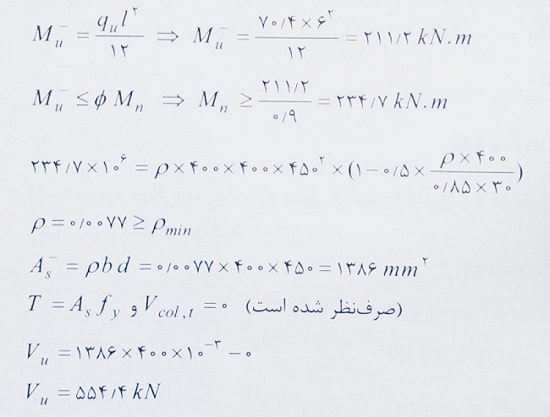 M_u^- = q_u l^۲ / ۱۲ ⇒ M_u^- = ۷۰/۴ × ۶^۲ / ۱۲ = ۲۱۱/۲ kN.m
M_u^- ≤ ϕ M_n ⇒ M_n ≥ ۲۱۱/۲ / ۰/۹ = ۲۳۴/۷ kN.m
۲۳۴/۷ × ۱۰^۶ = ρ × ۴۰۰ × ۴۰۰ × ۴۵۰^۲ × (۱ − ۰/۵ × ρ × ۴۰۰ / ۰/۸۵ × ۳۰)
ρ = ۰/۰۰۷۷ ≥ ρ_min
A_s^- = ρ b d = ۰/۰۰۷۷ × ۴۰۰ × ۴۵۰ = ۱۳۸۶ mm^۲
T = A_s f_y و V_col,t = ۰ (صرف‌نظر شده است)
V_u = ۱۳۸۶ × ۴۰۰ × ۱۰^-۳ − ۰
V_u = ۵۵۴/۴ kN